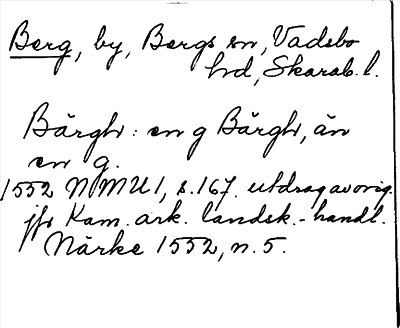 Berg, by, Bergs sn, Vadsbo
hd, Skarab. l.
Bärgh: en g Bärgh, än
en g.
1552 NMU 1, s. 167. utdrag av orig.
jfr Kam. ark. landsk.-handl.
Närke 1552, n. 5.